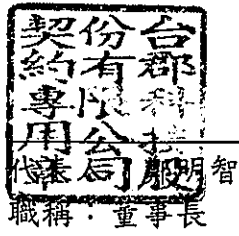 台郡科技股
份有限公司
契約專用章
代表人：鄭明智
職稱：董事長